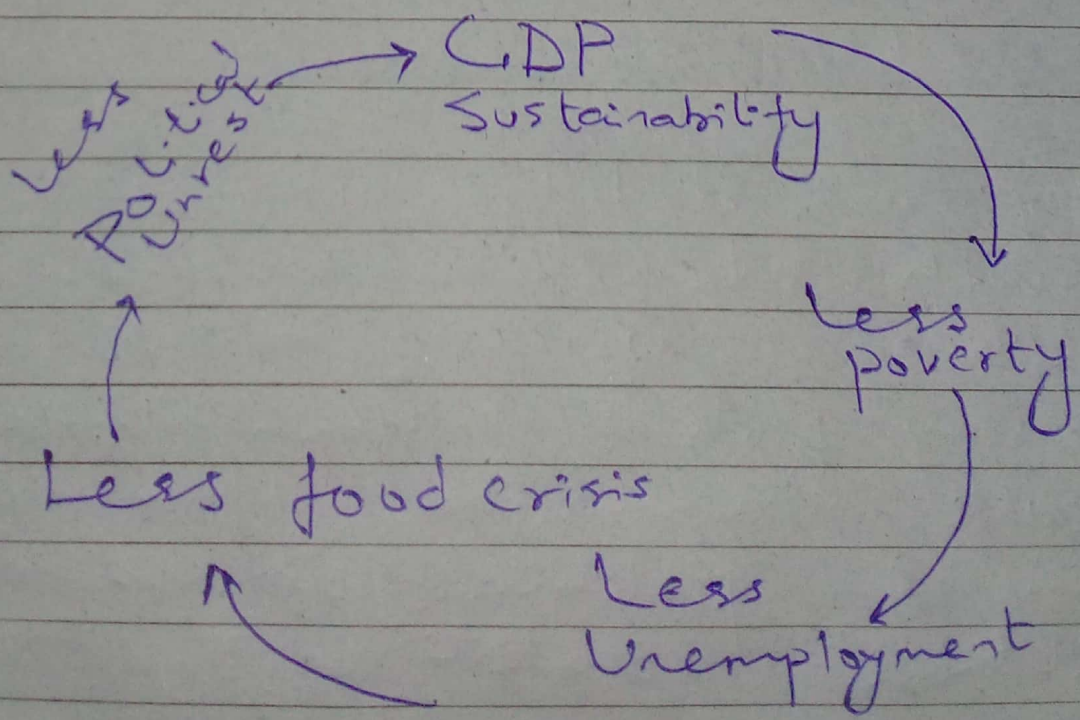 GDP
Sustainability
Less
poverty
Less
Unemployment
Less food crisis
Less
Political
Unrest